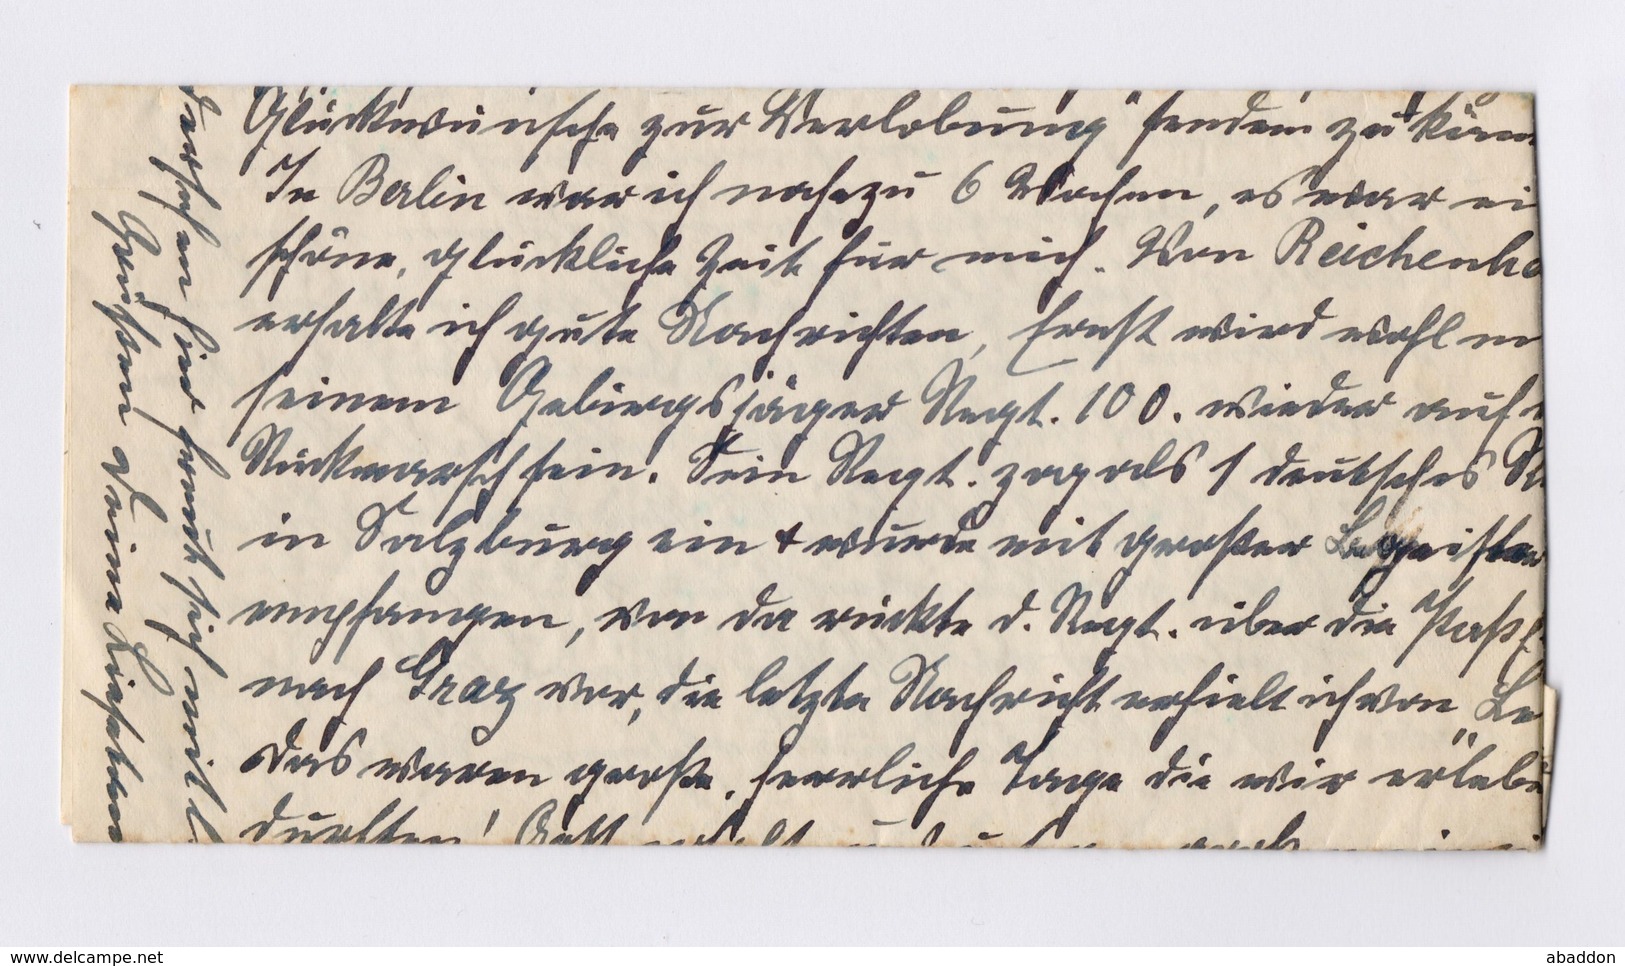 Glückwünsche zur Verlobung" senden zu könn
In Berlin war ich nahezu 6 Wochen, es war ei
schöne, glückliche Zeit für mich. Von Reichenha
erhalte ich gute Nachrichten, Ernst wird wohl m
seinem Gebirgsjäger Regt. 100. wieder auf
Rückmarsch sein. Sein Regt. zog als 1 deutsches R
in Salzburg ein + wurde mit großer Begeister
empfangen, von da rückte d. Regt. über die Päße
nach Graz vor, die letzte Nachricht erhielt ich von „Le
das waren große, herrliche Tage die wir erleb
durften! Gott
derselben sind somit sich mit l
Grüßen Deine
www.delcampe.net
abaddon